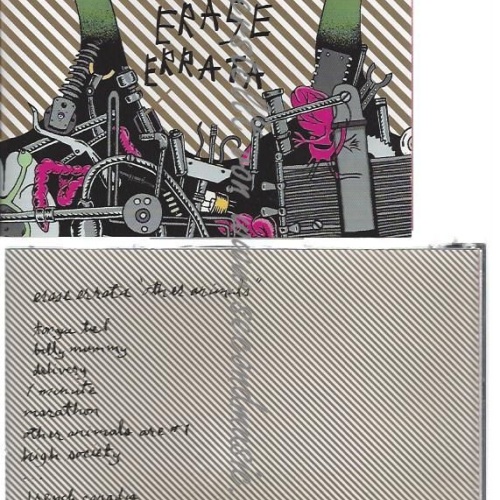 ERASE
ERRATA
erase errata "other animals"
tongue tied
billy mummy
delivery
1 minute
marathon
other animals are #1
high society
french canadia